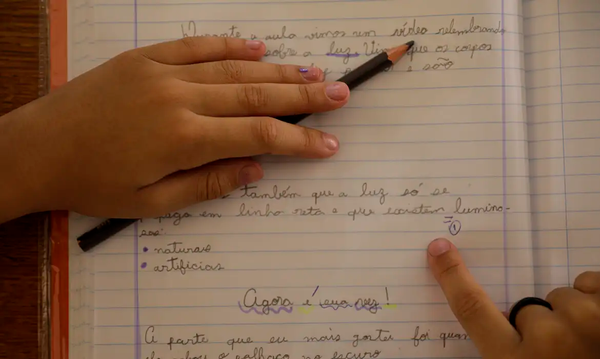 Durante a aula vimos um vídeo relembrando
sobre a luz. que os corpos
e são
também que a luz só se
em linha reta e que existem lumino-
sos:
• naturais
• artificiais
①
Agora é sua vez!
A parte que eu mais gostei foi quan
o palhaço no escuro